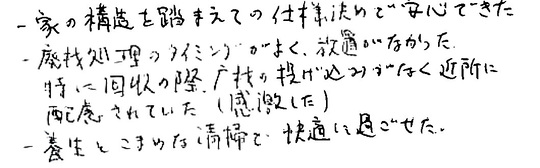 - 家の構造を踏まえての仕様決めで安心できた
- 廃材処理のタイミングがよく、放置がなかった。
特に回収の際、广材の投げ込みがなく近所に
配慮されていた (感激した)
- 養生とこまめな清掃で快適に過ごせた。